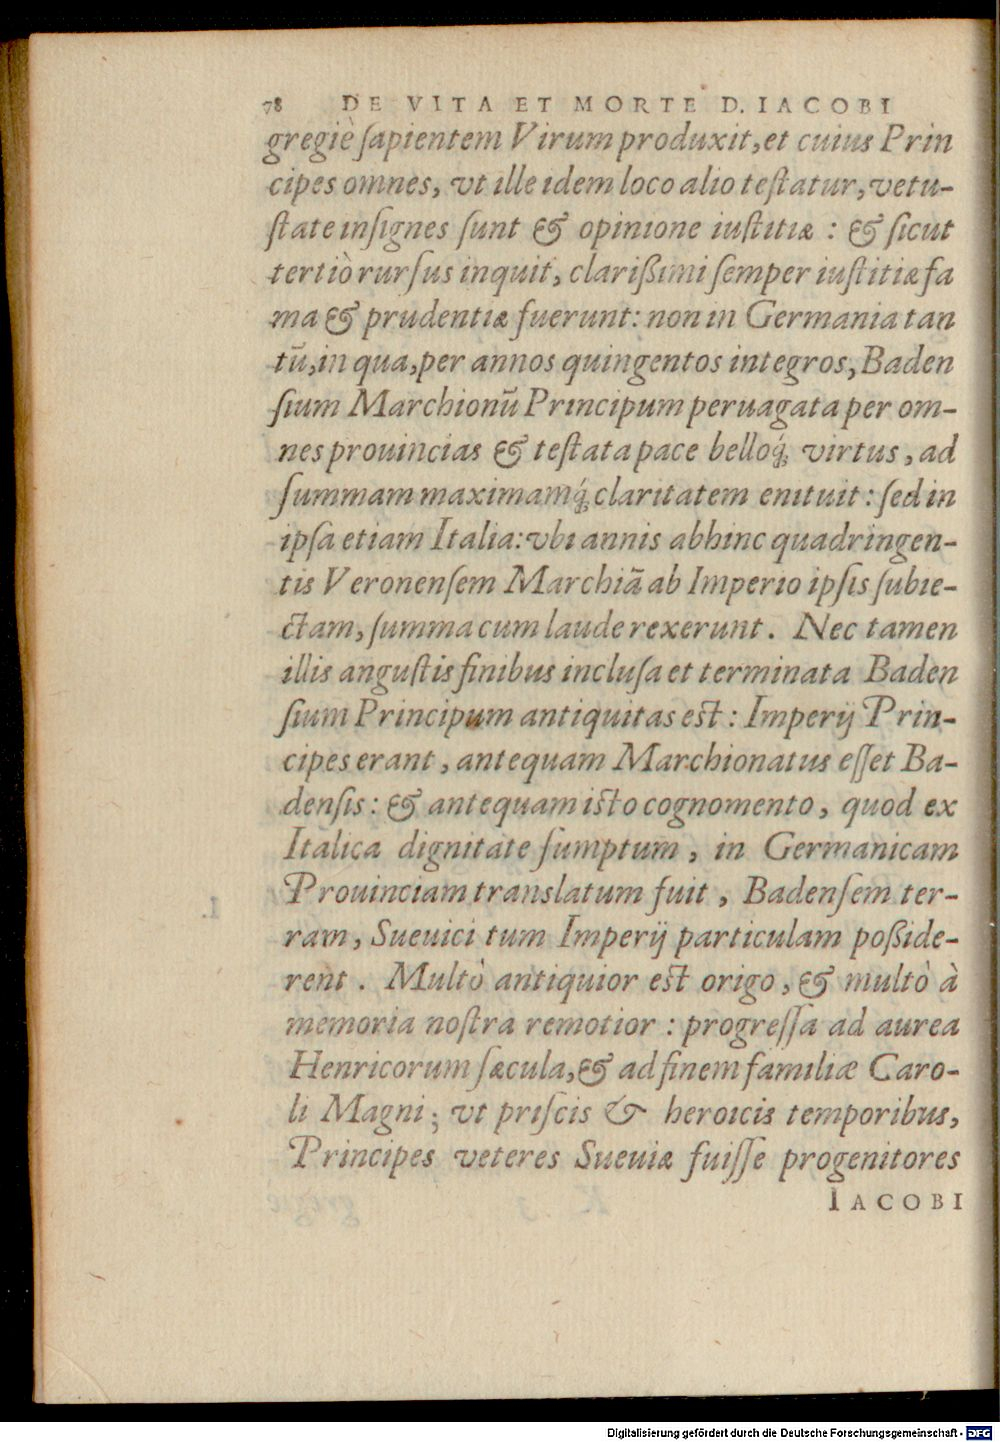 78 DE VITA ET MORTE D. IACOBI
gregiè ſapientem Virum produxit, et cuius Prin
cipes omnes, vt ille idem loco alio teſtatur, vetu-
ſtate inſignes ſunt & opinione iuſtitiæ : & ſicut
tertiò rurſus inquit, clarißimi ſemper iuſtitiæ fa
ma & prudentiæ fuerunt: non in Germania tan
tū, in qua, per annos quingentos integros, Baden
ſium Marchionū Principum peruagata per om-
nes prouincias & teſtata pace belloq́; virtus, ad
ſummam maximamq́; claritatem enituit : ſed in
ipſa etiam Italia: vbi annis abhinc quadringen-
tis Veronenſem Marchiā ab Imperio ipſis ſubie-
ctam, ſumma cum laude rexerunt. Nec tamen
illis anguſtis finibus incluſa et terminata Baden
ſium Principum antiquitas est : Imperij Prin-
cipes erant, antequam Marchionatus eſſet Ba-
denſis: & antequam isto cognomento, quod ex
Italica dignitate ſumptum, in Germanicam
Prouinciam translatum fuit, Badenſem ter-
ram, Sueuici tum Imperij particulam poßide-
rent. Multò antiquior est origo, & multò à
memoria noſtra remotior : progreſſa ad aurea
Henricorum ſæcula, & ad finem familiæ Caro-
li Magni; vt priſcis & heroicis temporibus,
Principes veteres Sueuiæ fuiſſe progenitores
IACOBI
Digitalisierung gefördert durch die Deutsche Forschungsgemeinschaft - DFG